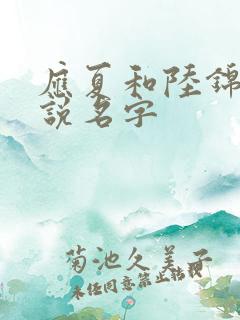 應夏和陸錦
說名字
菊池久美子
未經同意禁止轉載